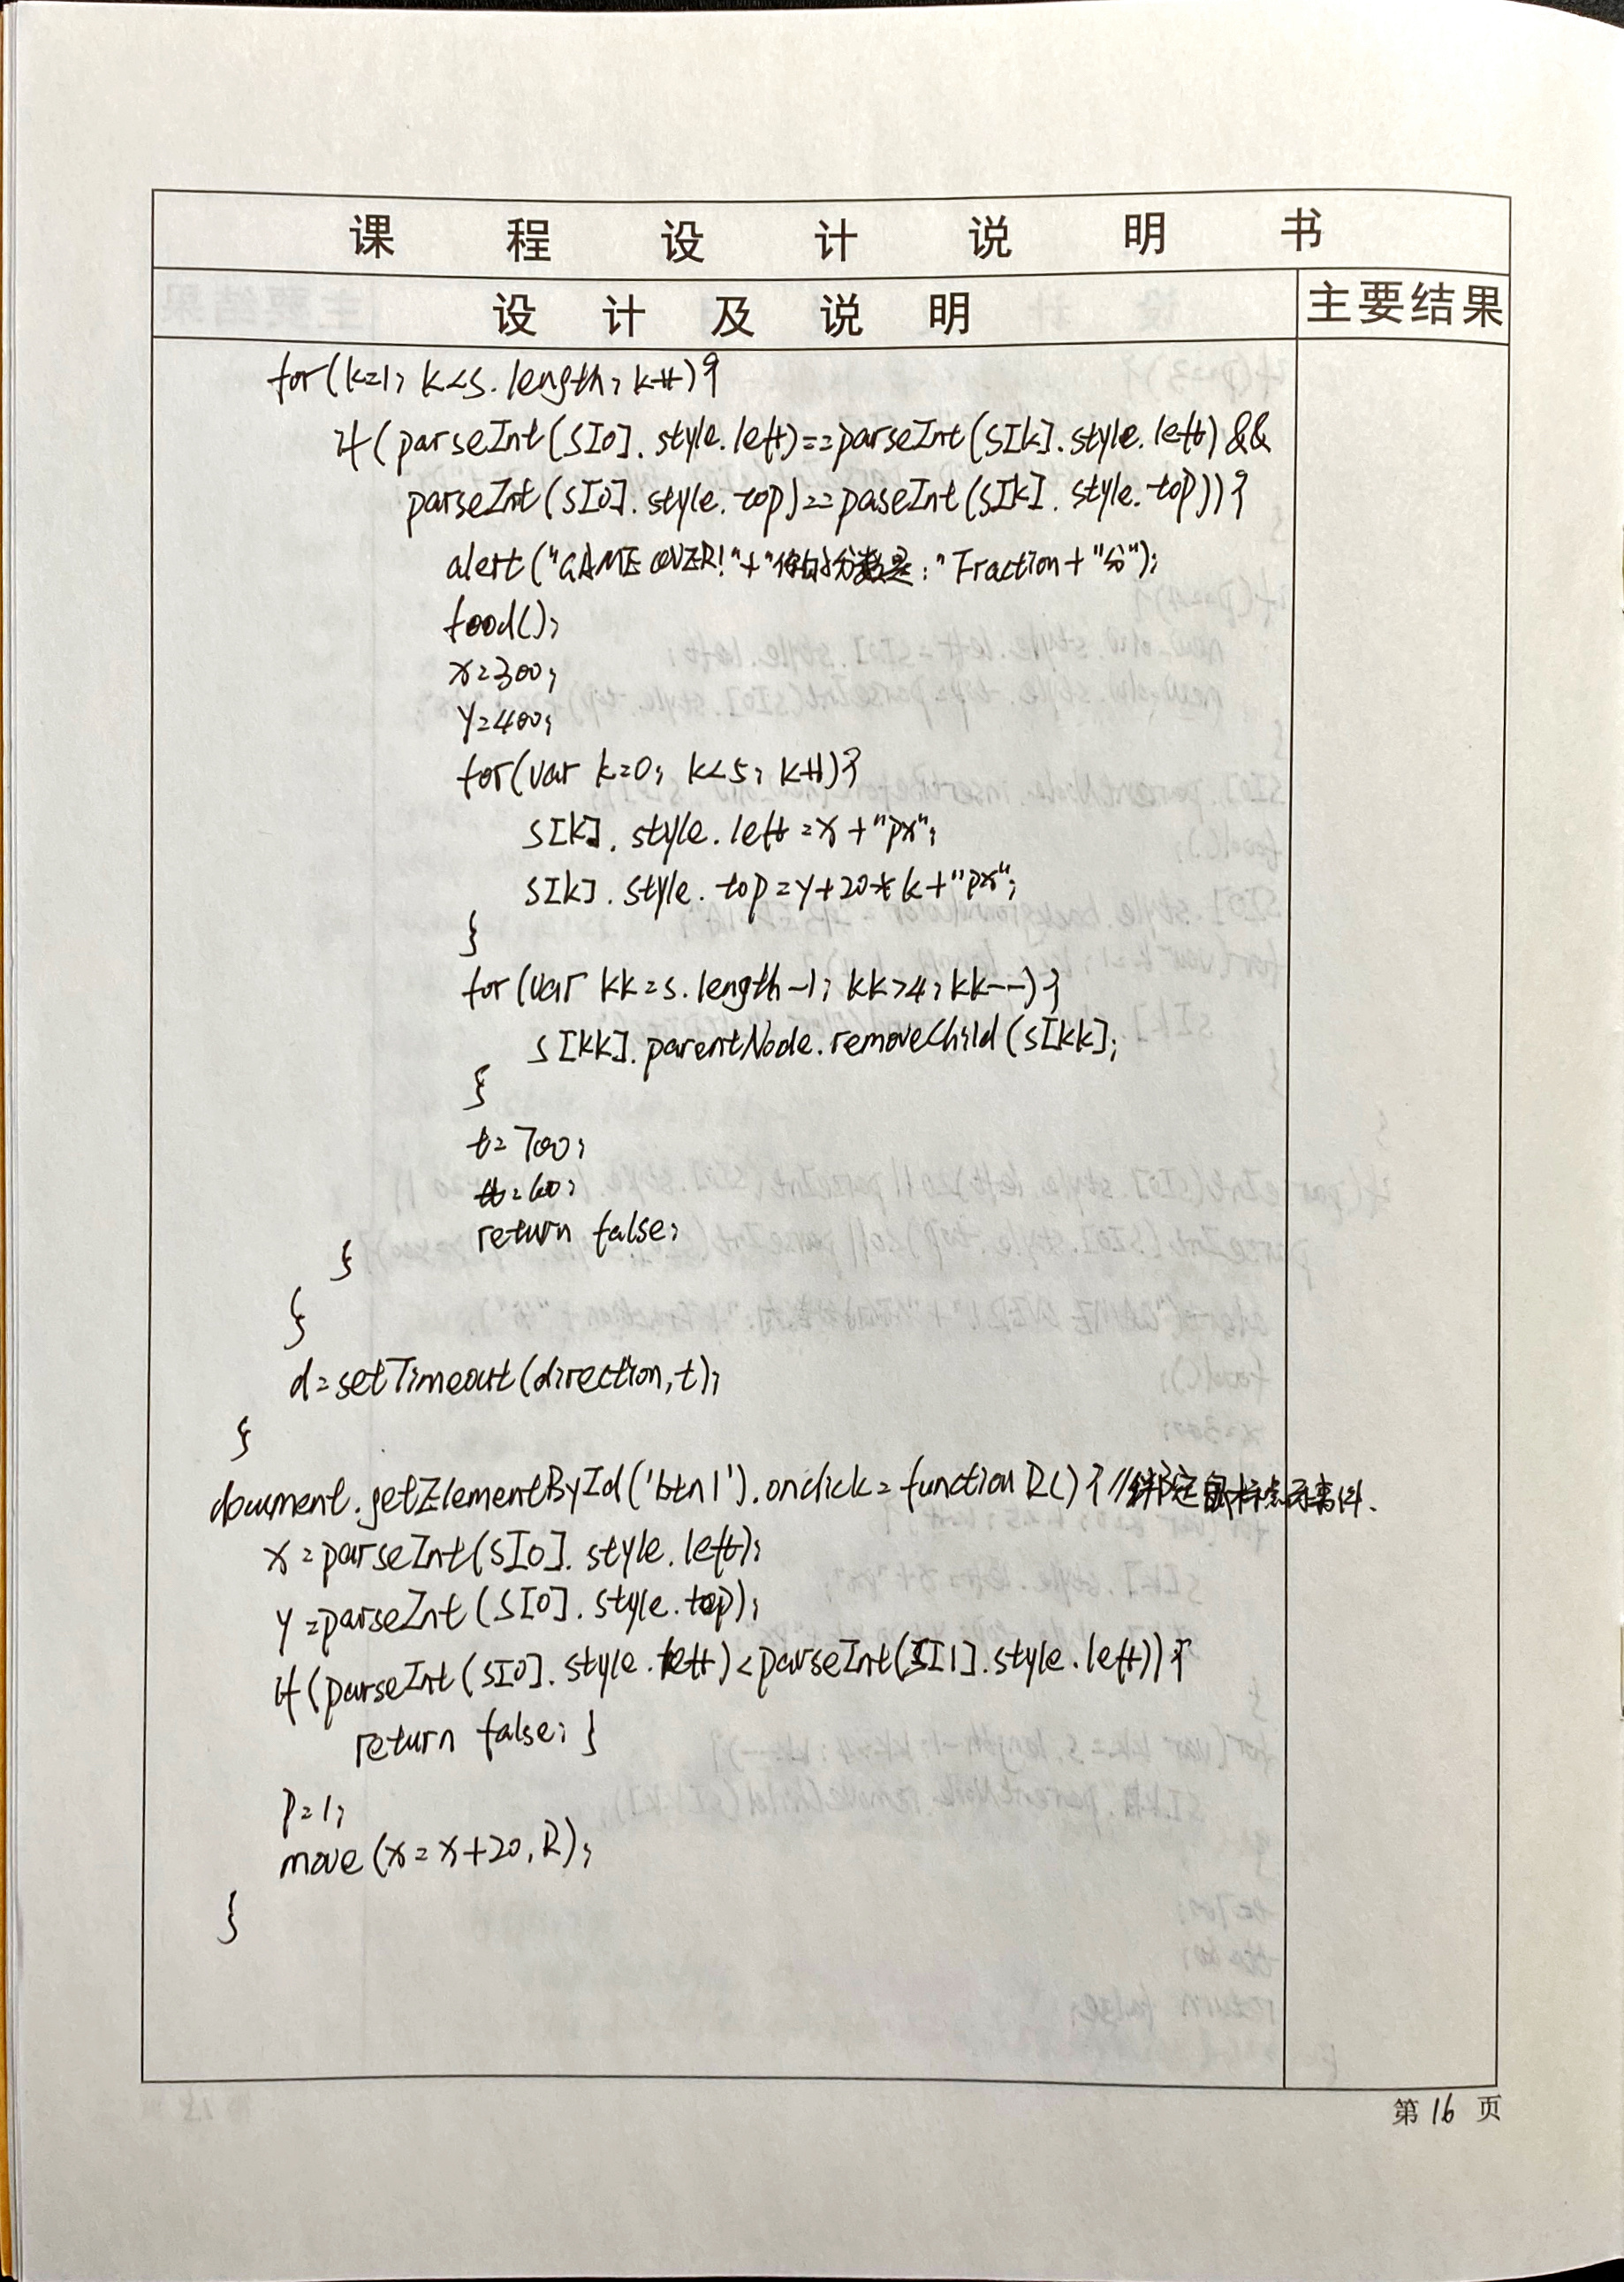 课程设计说明书
设计及说明 主要结果
for(k=1; k<s.length; k++){
if(parseInt(s[0].style.left)==parseInt(s[k].style.left)&&
parseInt(s[0].style.top)==paseInt(s[k].style.top)){
alert("GAME OVER!"+"你的分数是:"Fraction+"分");
food();
x=300;
y=400;
for(var k=0; k<5; k++){
s[k].style.left=x+"px";
s[k].style.top=y+20*k+"px";
}
for(var kk=s.length-1; kk>4; kk--){
s[kk].parentNode.removeChild(s[kk];
}
t=700;
tt=60;
return false;
}
}
d=setTimeout(direction,t);
}
document.getElementById('btn1').onclick=function R(){//绑定鼠标点击事件.
x=parseInt(s[0].style.left);
y=parseInt(s[0].style.top);
if(parseInt(s[0].style.left)<parseInt(s[1].style.left)){
return false; }
p=1;
move(x=x+20,R);
}
第16页